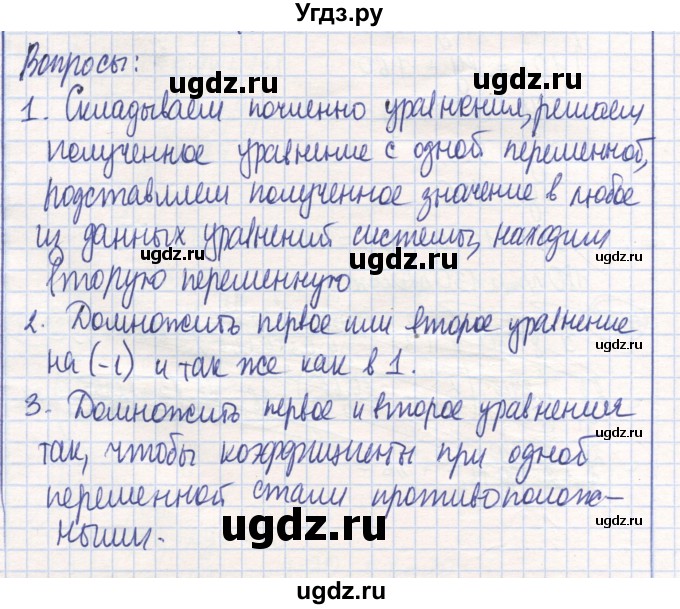 Угдз.ру
Вопросы:
1. Складываем почленно уравнения, решаем
полученное уравнение с одной переменной,
подставляем полученное значение в любое
из данных уравнений системы, находим
вторую переменную
2. Домножить первое или второе уравнение
на (-1) и так же как в 1.
3. Домножить первое и второе уравнения
так, чтобы коэффициенты при одной
переменной стали противополож-
ными.
ugdz.ru
ugdz.ru
ugdz.ru
ugdz.ru
ugdz.ru
ugdz.ru
ugdz.ru
ugdz.ru
ugdz.ru
ugdz.ru
ugdz.ru
ugdz.ru